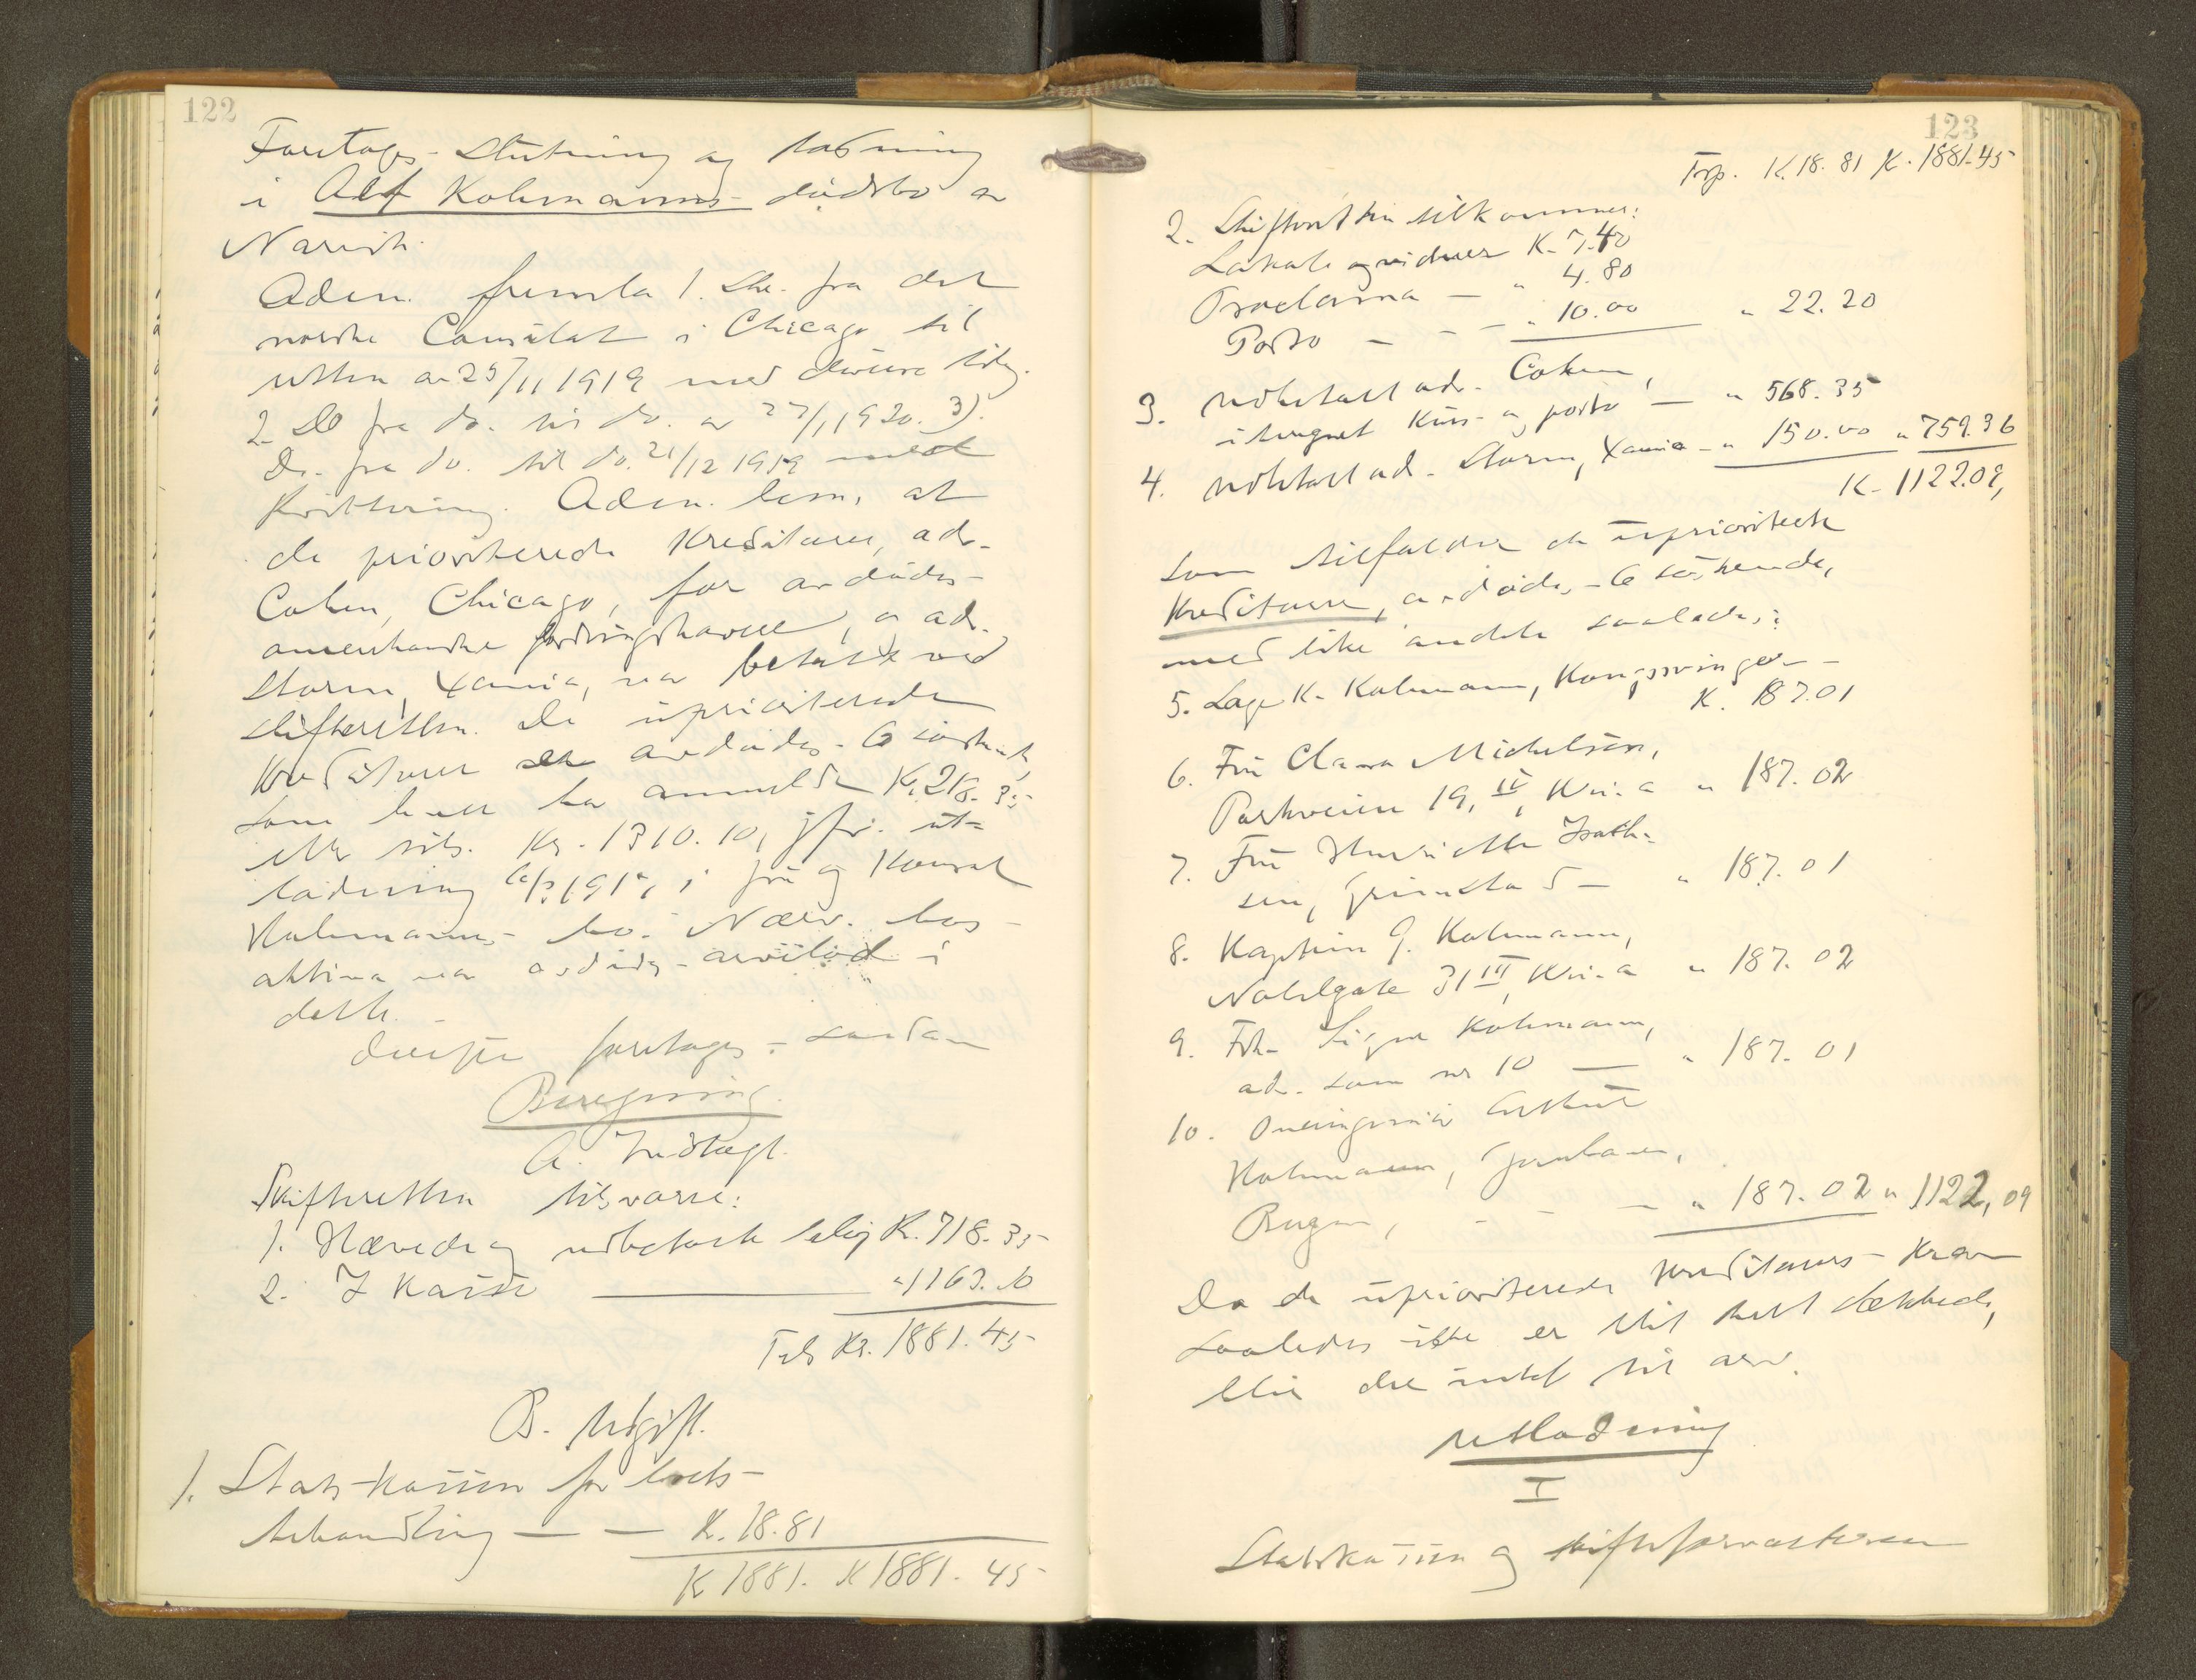 122
Foretages slutning og lodning
i Alf Kohmanns dødsbo av
Narvik.
Adm. fremla 1. Skr. fra det
norske Consulat i Chicago til
retten av 25/11 1919 med diverse bilag.
2. Do fra do. til do. av 27/1 1920. 3).
Do. fra do. til do. 21/12 1919 med
kvittering. Adm. bem. at
de prioriterede kreditorer, adv.
Cohen, Chicago, for avdødes
amerikanske fordringshavere, og adv.
Storm, Xania, var betalt ved
skifteretten. De uprioriterede
kreditorer er avdødes 6 søskende,
som hver har anmeldt Kr. 218.35
eller tils. Kr. 1310.10, jfr. ut-
lodning i fru og Konsul
Kohmanns bo. Nærv. bos
aktiva var avdødes arvelod i
dette.
Derefter foretages saadan
Beregning.
A. Indtægt.
Skifteretten tilsvarer:
1. Hævede og utbetalte beløp K. 718.35
2. I Kasse " 1163.10
Tils Kr. 1881.45
B. Utgift.
1. Statskassen for boets
behandling — — K. 18.81
K 1881. K 1881.45
123
Trp. K. 18.81 K. 1881.45
2. Skifteretten tilkommer:
Lokale og vidner K. 7.40
Proclama — " 4.80
Porto — - — " 10.00 " 22.20
3. Utbetalt adv. Cohen,
iberegnet kurs og porto — " 568.35
4. Utbetalt adv. Storm, Xania - " 150.00 " 759.36
K. 1122.09,
som tilfalder de uprioriterte
kreditorer, avdødes 6 søskende,
med like andele saaledes:
5. Sagf. K. Kohmann, Kongsvinger -
K. 187.01
6. Fru Clara Michelsen,
Parkveien 19, IV, Kr.a " 187.02
7. Fru Henriette Isach-
sen, Grimstad — " 187.01
8. Kaptein J. Kohmann,
Nobelsgate 31 III, Kr.a " 187.02
9. Frk. Signe Kohmann,
adr. som nr 10 — " 187.01
10. Overingeniør Arthur
Kohmann, Jernbanen,
Bergen, - - — " 187.02 " 1122,09
Da de uprioriterede kreditorers krav
saaledes ikke er blit helt dækkede,
blir der intet til arv.
Utlodning
I
Statskassen og skifteforvalteren